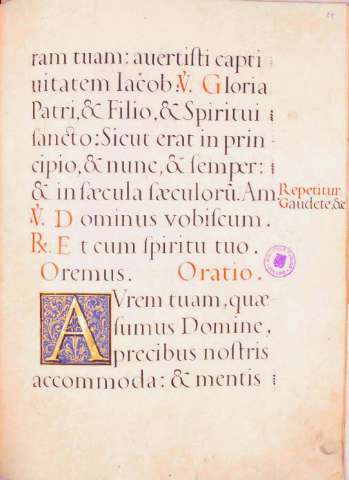 ram tuam: auertisti capti
uitatem Iacob. ℣. Gloria
Patri, & Filio, & Spiritui
sancto: Sicut erat in prin-
cipio, & nunc, & semper:
& in sæcula sæculorū. Am.
Repetitur
Gaudete, &c
℣. Dominus vobiscum.
℟. Et cum spiritu tuo.
Oremus. Oratio.
AVrem tuam, quæ
sumus Domine,
precibus nostris
accommoda: & mentis